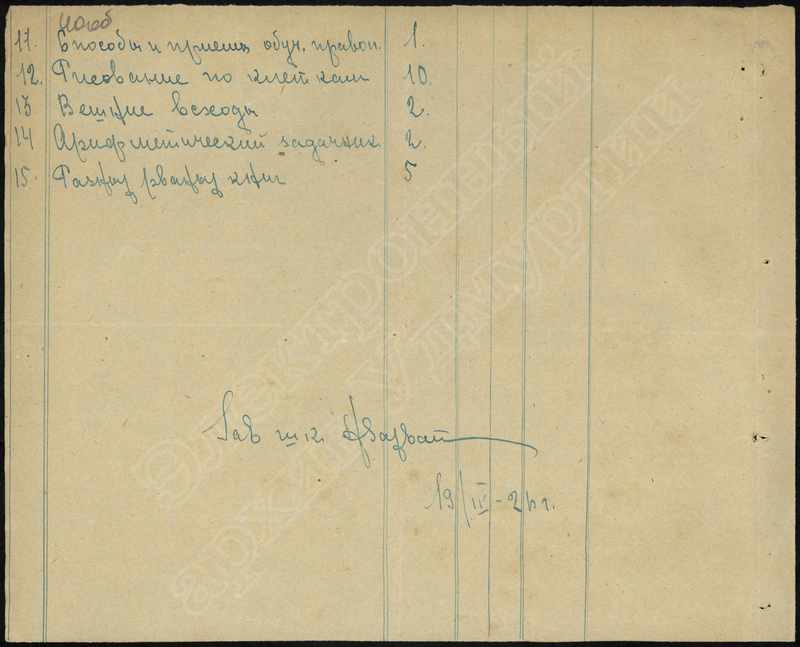 11. Способы и приемы обуч. правоп. 1.
12. Рисование по клеткам 10.
13 Вешние всходы 2.
14 Арифметический задачник 2.
15. Разных рваных книг 5
Зав шк.
19/II - 26 г.
Электронный
архив Удмуртии